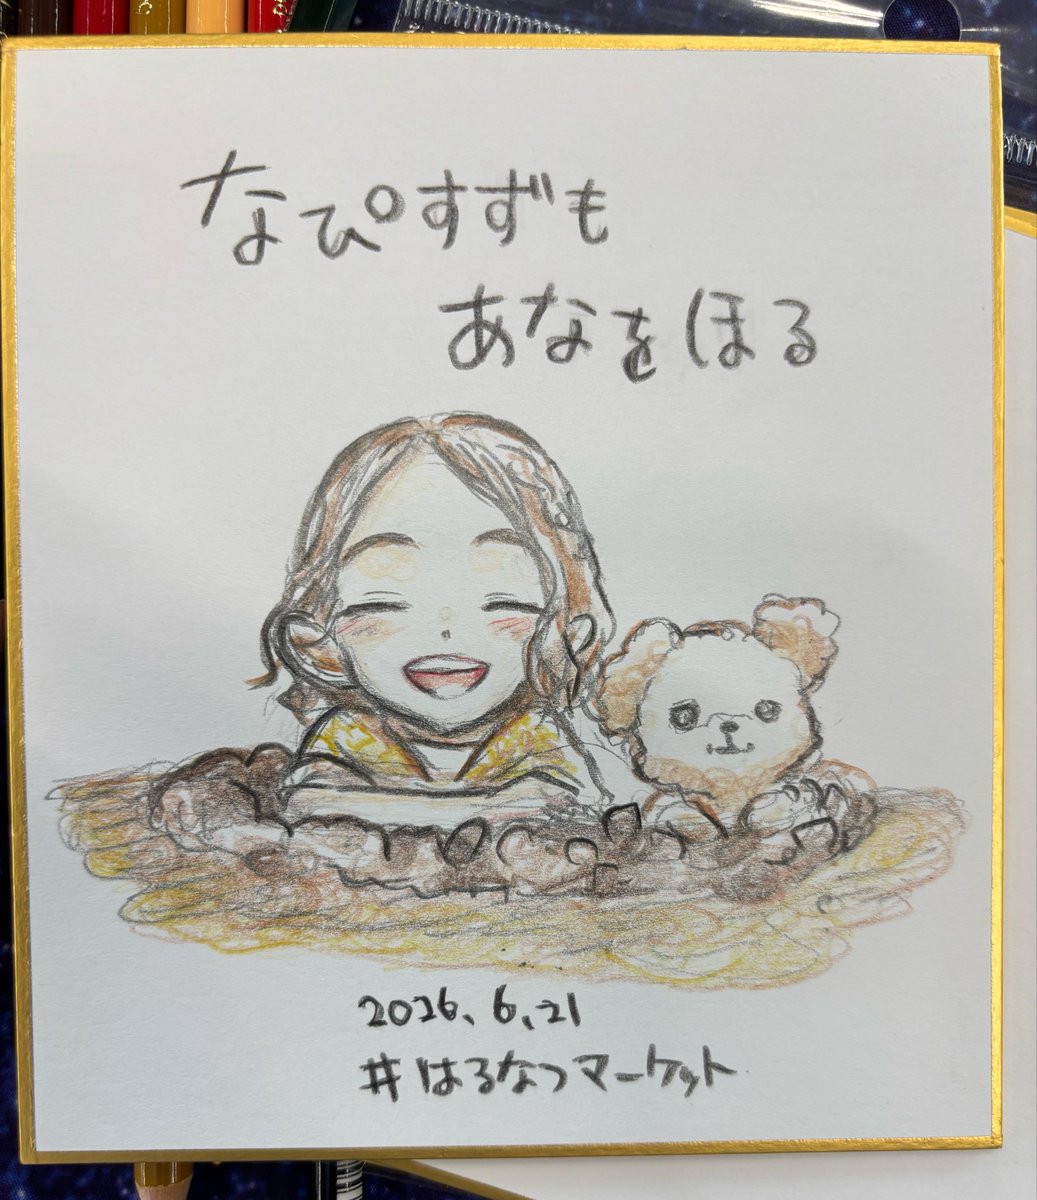 なぴすずも
あなをほる
2026、6、21
#はるなつマーケット